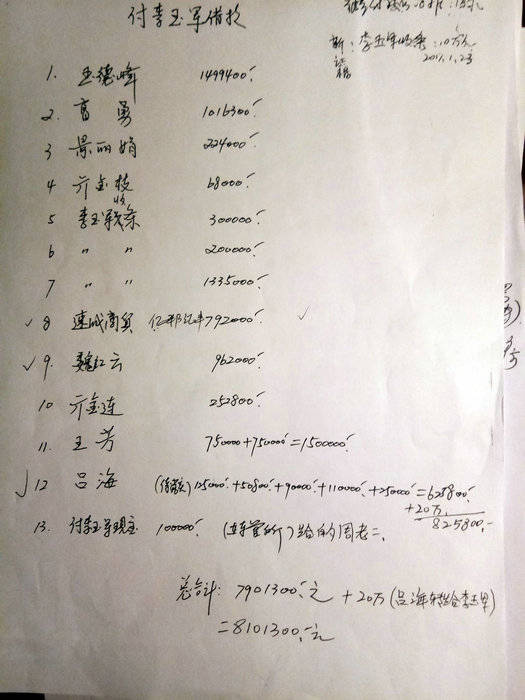 付李玉军借款
新: 李玉军收条: 10万元
2011.1.23
1. 王德峰 1499400.
2. 高勇 1016300.
3 景丽娟 224000.
4 亓金枝 68000.
5 李玉军收条 300000.
6 〃 〃 200000.
7 〃 〃 1335000.
✓ 8 速成商贸 792000. ✓
✓ 9. 魏红云 962000.
10 亓金连 252800.
11. 王芳 750000+750000=1500000.
✓ 12 吕海 125000+50800+90000+110000+250000=625800.
+20万.
825800.
13. 付李玉军现金 100000. 给的周老二.
总合计: 7901300.元 +20万(吕海转给李玉军)
=8101300.元